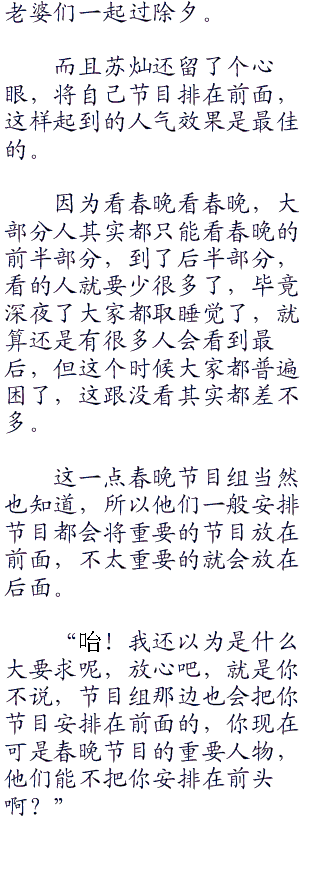 老婆们一起过除夕。
而且苏灿还留了个心
眼，将自己节目排在前面，
这样起到的人气效果是最佳
的。
因为看春晚看春晚，大
部分人其实都只能看春晚的
前半部分，到了后半部分，
看的人就要少很多了，毕竟
深夜了大家都取睡觉了，就
算还是有很多人会看到最
后，但这个时候大家都普遍
困了，这跟没看其实都差不
多。
这一点春晚节目组当然
也知道，所以他们一般安排
节目都会将重要的节目放在
前面，不太重要的就会放在
后面。
“咍！我还以为是什么
大要求呢，放心吧，就是你
不说，节目组那边也会把你
节目安排在前面的，你现在
可是春晚节目的重要人物，
他们能不把你安排在前头
啊？”